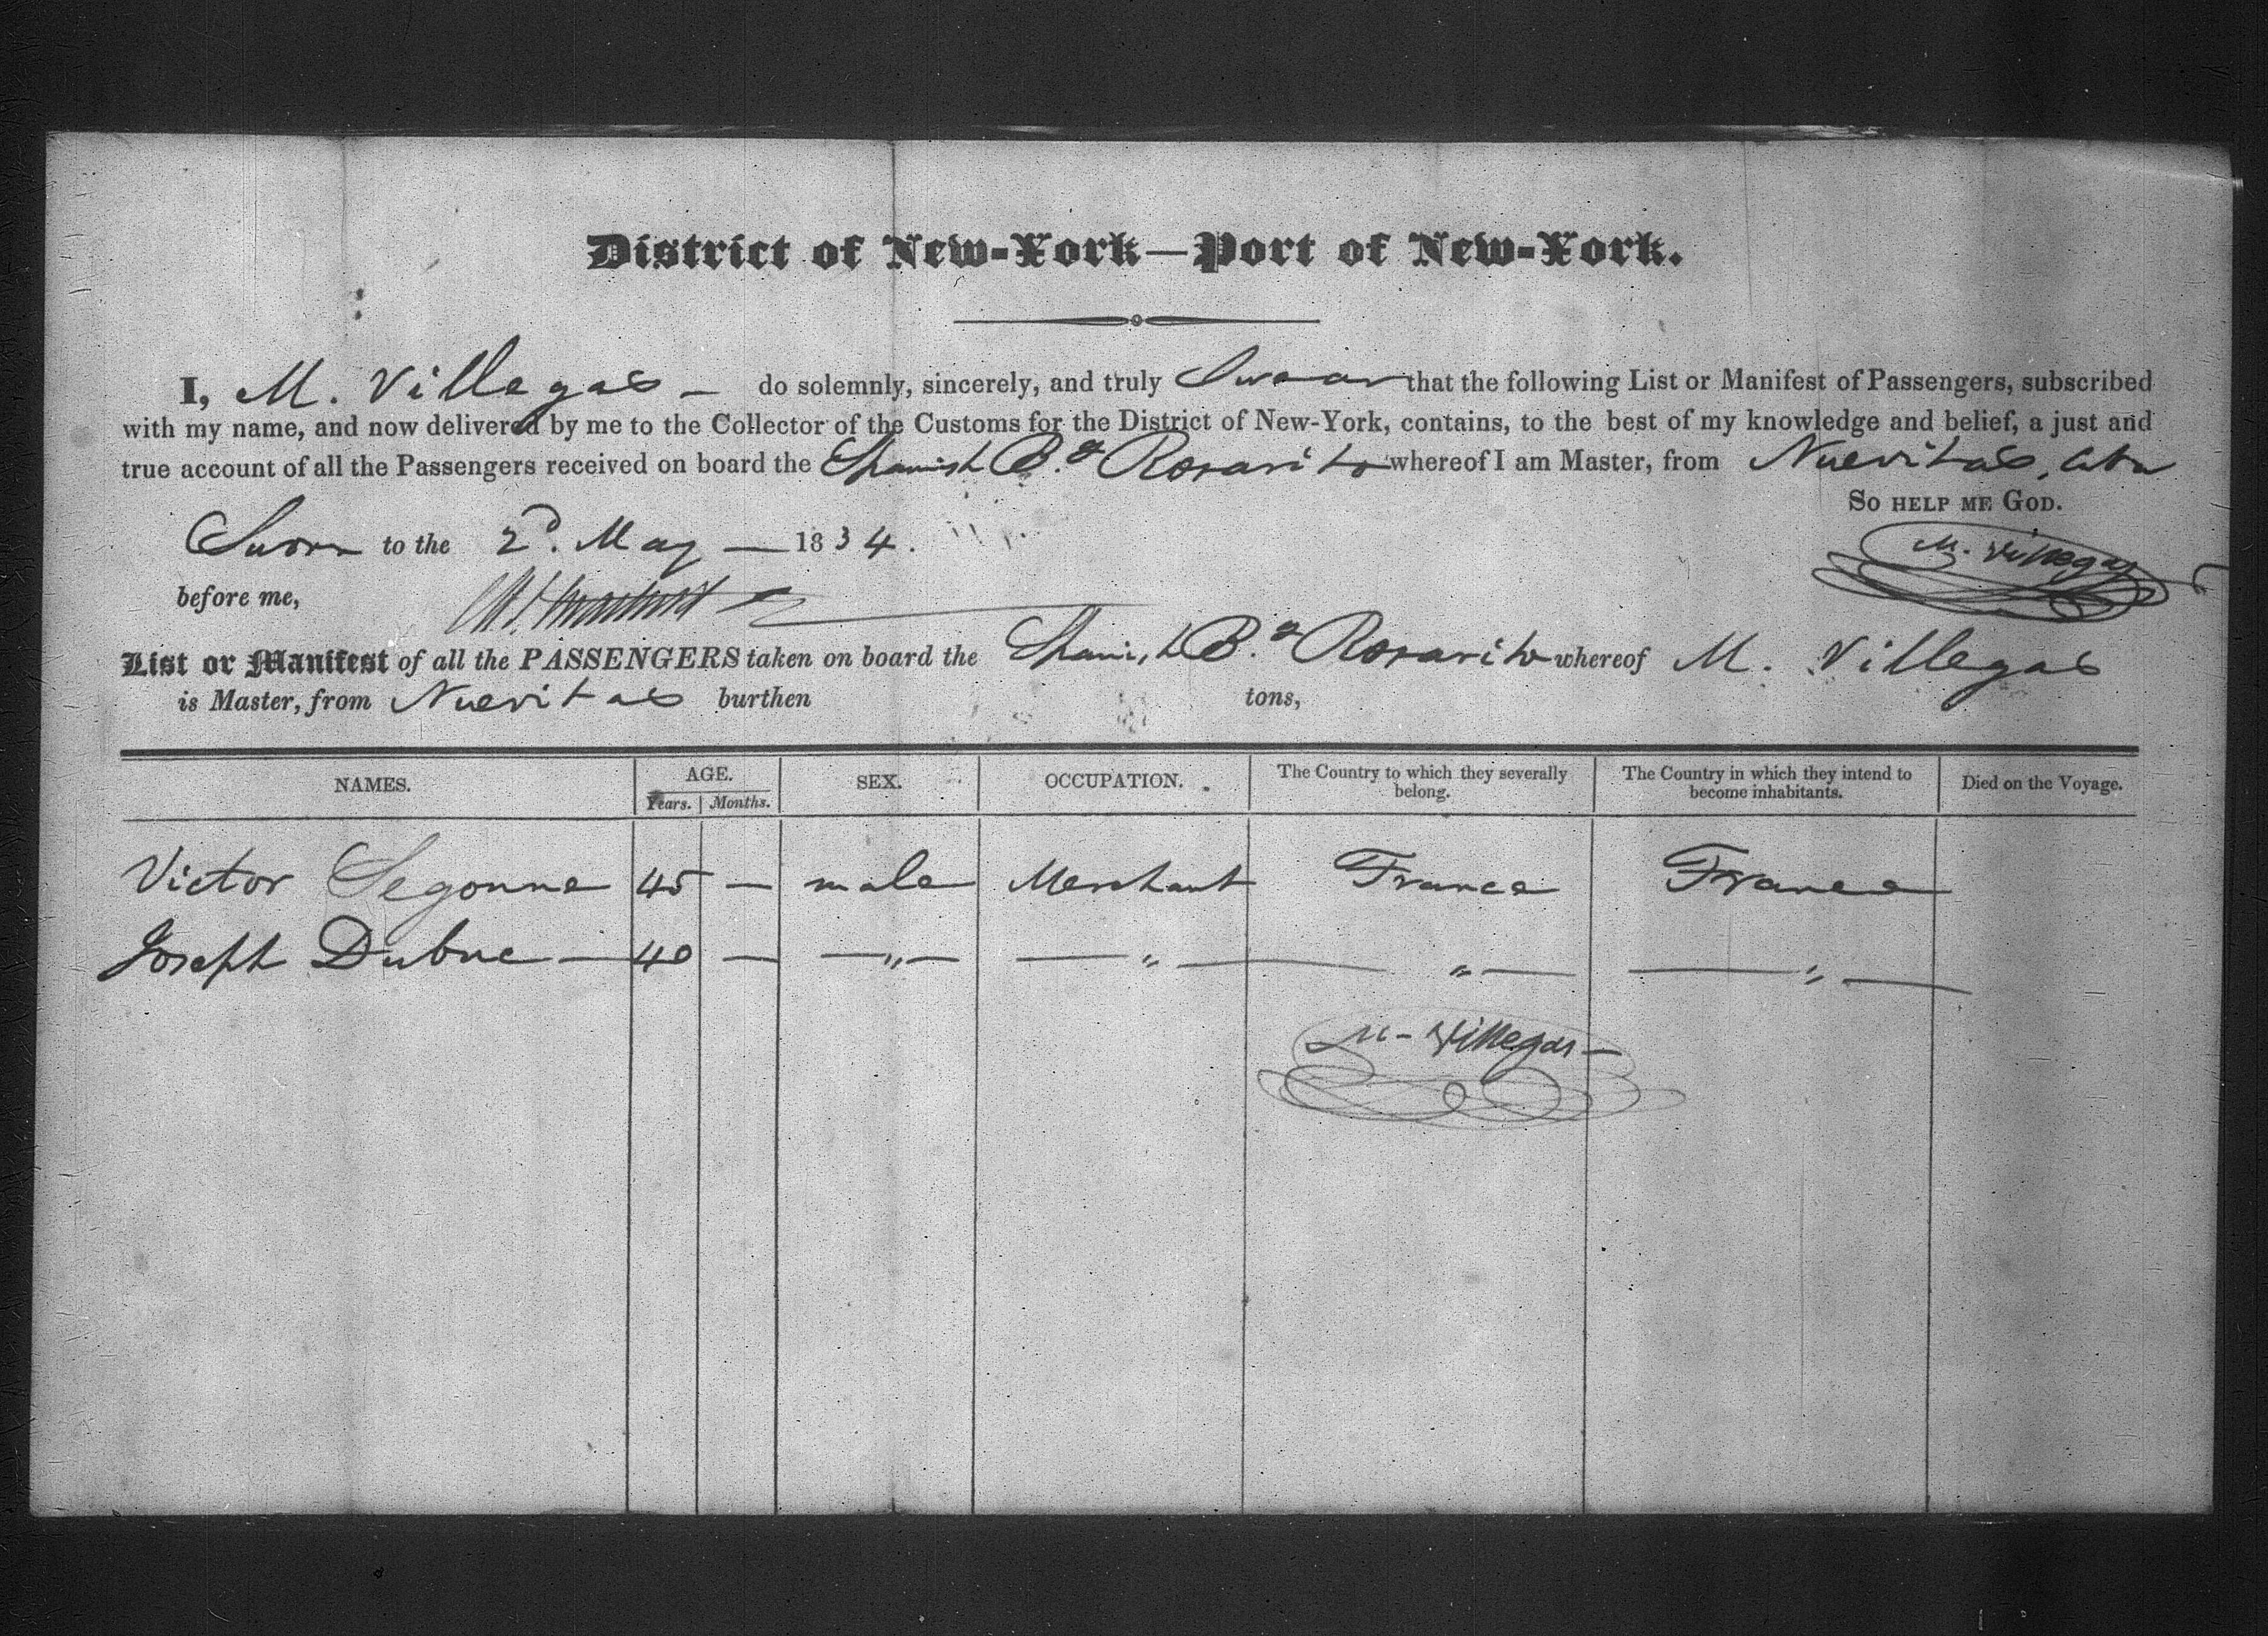 District of New-York—Port of New-York.
I, M. Villegas — do solemnly, sincerely, and truly Swear that the following List or Manifest of Passengers, subscribed
with my name, and now delivered by me to the Collector of the Customs for the District of New-York, contains, to the best of my knowledge and belief, a just and
true account of all the Passengers received on board the Spanish B.g Rosarito whereof I am Master, from Nuevitas, Cuba
So help me God.
Sworn to the 2d. May — 1834.
M. Villegas
before me,
List or Manifest of all the PASSENGERS taken on board the Spanish B.g Rosarito whereof M. Villegas
is Master, from Nuevitas burthen tons,
NAMES. AGE. SEX. OCCUPATION. The Country to which they severally belong. The Country in which they intend to become inhabitants. Died on the Voyage.
Years. Months.
Victor Segonne 45 — male Merchant France France
Joseph Dubue — 40 — —„— —„— —„— —„—
M - Villegas —